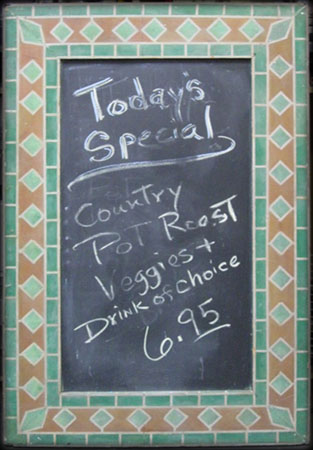 Today's
Special
Country
Pot Roast
Veggies +
Drink of Choice
6.95